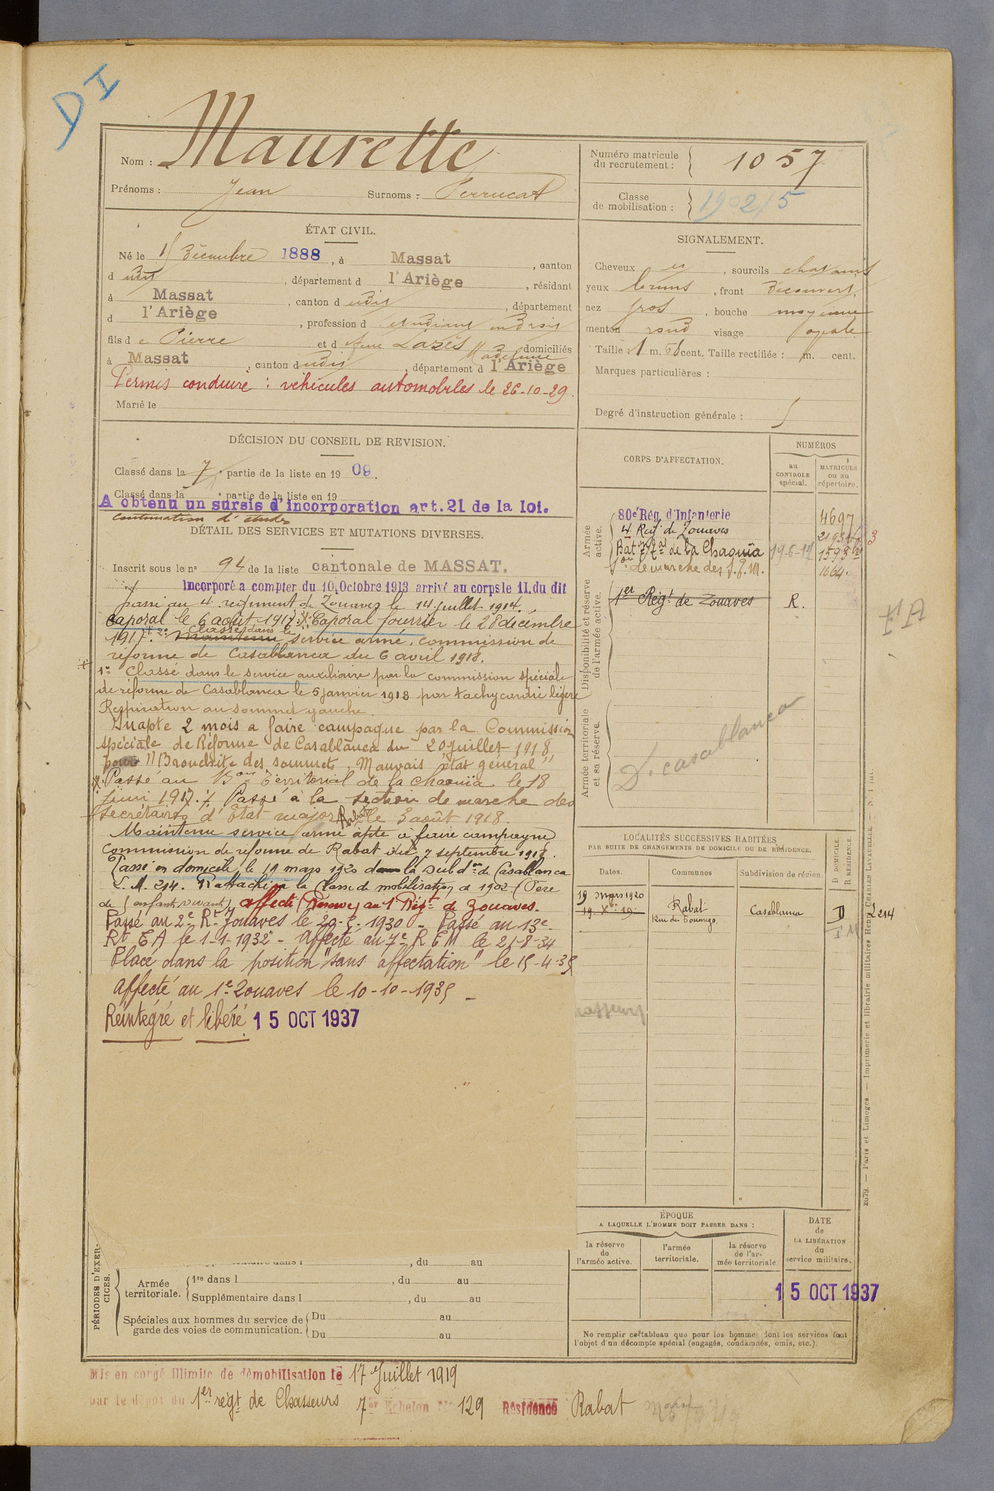 DI
Nom : Maurette
Prénoms : Jean Surnoms : Perrucat
Numéro matricule du recrutement : 1057
Classe de mobilisation : 1902/5
ÉTAT CIVIL.
Né le 1 Décembre 1888, à Massat, canton
d udit, département d l'Ariège, résidant
à Massat, canton d udit, département
d l'Ariège, profession d étudiant en droit
fils d e Pierre et d feue Lazès Madeleine domiciliés
à Massat, canton d udit, département d l'Ariège
Permis conduire : véhicules automobiles le 26-10-29.
Marié le
SIGNALEMENT.
Cheveux et, sourcils chatains
yeux bruns, front Découvert,
nez gros, bouche moyenne
menton rond visage ovale
Taille : 1 m. cent. Taille rectifiée : m. cent.
Marques particulières :
Degré d'instruction générale :
DÉCISION DU CONSEIL DE REVISION.
Classé dans la 7e partie de la liste en 1909.
Classé dans la partie de la liste en 19
A obtenu un sursis d'incorporation art. 21 de la loi.
Continuation d'études
DÉTAIL DES SERVICES ET MUTATIONS DIVERSES.
Inscrit sous le n° 94 de la liste cantonale de MASSAT.
Incorporé a compter du 10 Octobre 1913 arrivé au corps le 11 du dit
passé au 4 régiment de Zouaves le 14 juillet 1914.
Caporal le 6 août 1917. Caporal fourrier le 28 décembre
1917. 2° Classé dans le Maintenu service armé. Commission de
réforme de Casablanca du 6 avril 1918.
1° Classé dans le service auxiliaire par la commission spéciale
de réforme de Casablanca le 5 janvier 1918 par tachycardie légère
Respiration au sommet gauche.
Inapte 2 mois a faire campagne par la Commission
spéciale de Réforme de Casablanca du 20 juillet 1918
pour "Bronchite des sommets, Mauvais état général"
Passé au Bon Territorial de la Chaouïa le 18
juin 1917. Passé à la section de marche des
secrétaires d'Etat major Rabat le 3 août 1918.
Maintenu service armé apte à faire campagne
Commission de réforme de Rabat du 7 septembre 1918.
Passé en domicile le 19 mars 1920 dans la Subdon de Casablanca
L.M. 214. Rattaché à la classe de mobilisation de 1902 (Père
de enfants vivants) affecté (Réserve) au 1 Régt de Zouaves.
Passé au 2e Rt Zouaves le 1930. Passé au 13e
Rt E A le 1-1-1932 - Affecté au 7e R E M le 21-8-34
Placé dans la position "sans affectation" le 15-4-35
affecté au 1e Zouaves le 10-10-1935
Réintégré et libéré 15 OCT 1937
CORPS D'AFFECTATION.
NUMÉROS
au contrôle spécial.
matricule ou au répertoire.
Armée active.
80e Rég. d'Infanterie 4697
4 Régt de Zouaves
Bat. Tal de la Chaouïa 19-6-17
Son de marche des S.E.M. 1664.
Disponibilité et réserve de l'armée active.
1er Régt de Zouaves R.
FA
Armée territoriale et sa réserve.
D. Casablanca
LOCALITÉS SUCCESSIVES HABITÉES
PAR SUITE DE CHANGEMENTS DE DOMICILE OU DE RÉSIDENCE.
Dates. Communes Subdivision de région. D domicile. R résidence.
19 mars 1920 Rabat Casablanca D L 214
PÉRIODES D'EXERCICES.
Armée territoriale. 1re dans l, du au
Supplémentaire dans l, du au
Spéciales aux hommes du service de garde des voies de communication. Du au
Du au
ÉPOQUE
A LAQUELLE L'HOMME DOIT PASSER DANS :
la réserve de l'armée active.
l'armée territoriale.
la réserve de l'armée territoriale.
DATE de LA LIBÉRATION du service militaire.
15 OCT 1937
Ne remplir ce tableau que pour les hommes dont les services font l'objet d'un décompte spécial (engagés, condamnés, omis, etc.).
Imprimerie et librairie militaires Henri CHARLES-LAVAUZELLE
Paris et Limoges
Mis en congé illimité de démobilisation le 17 Juillet 1919
par le dépot du 1er régt de Chasseurs 7er Echelon No 129 Résidence Rabat